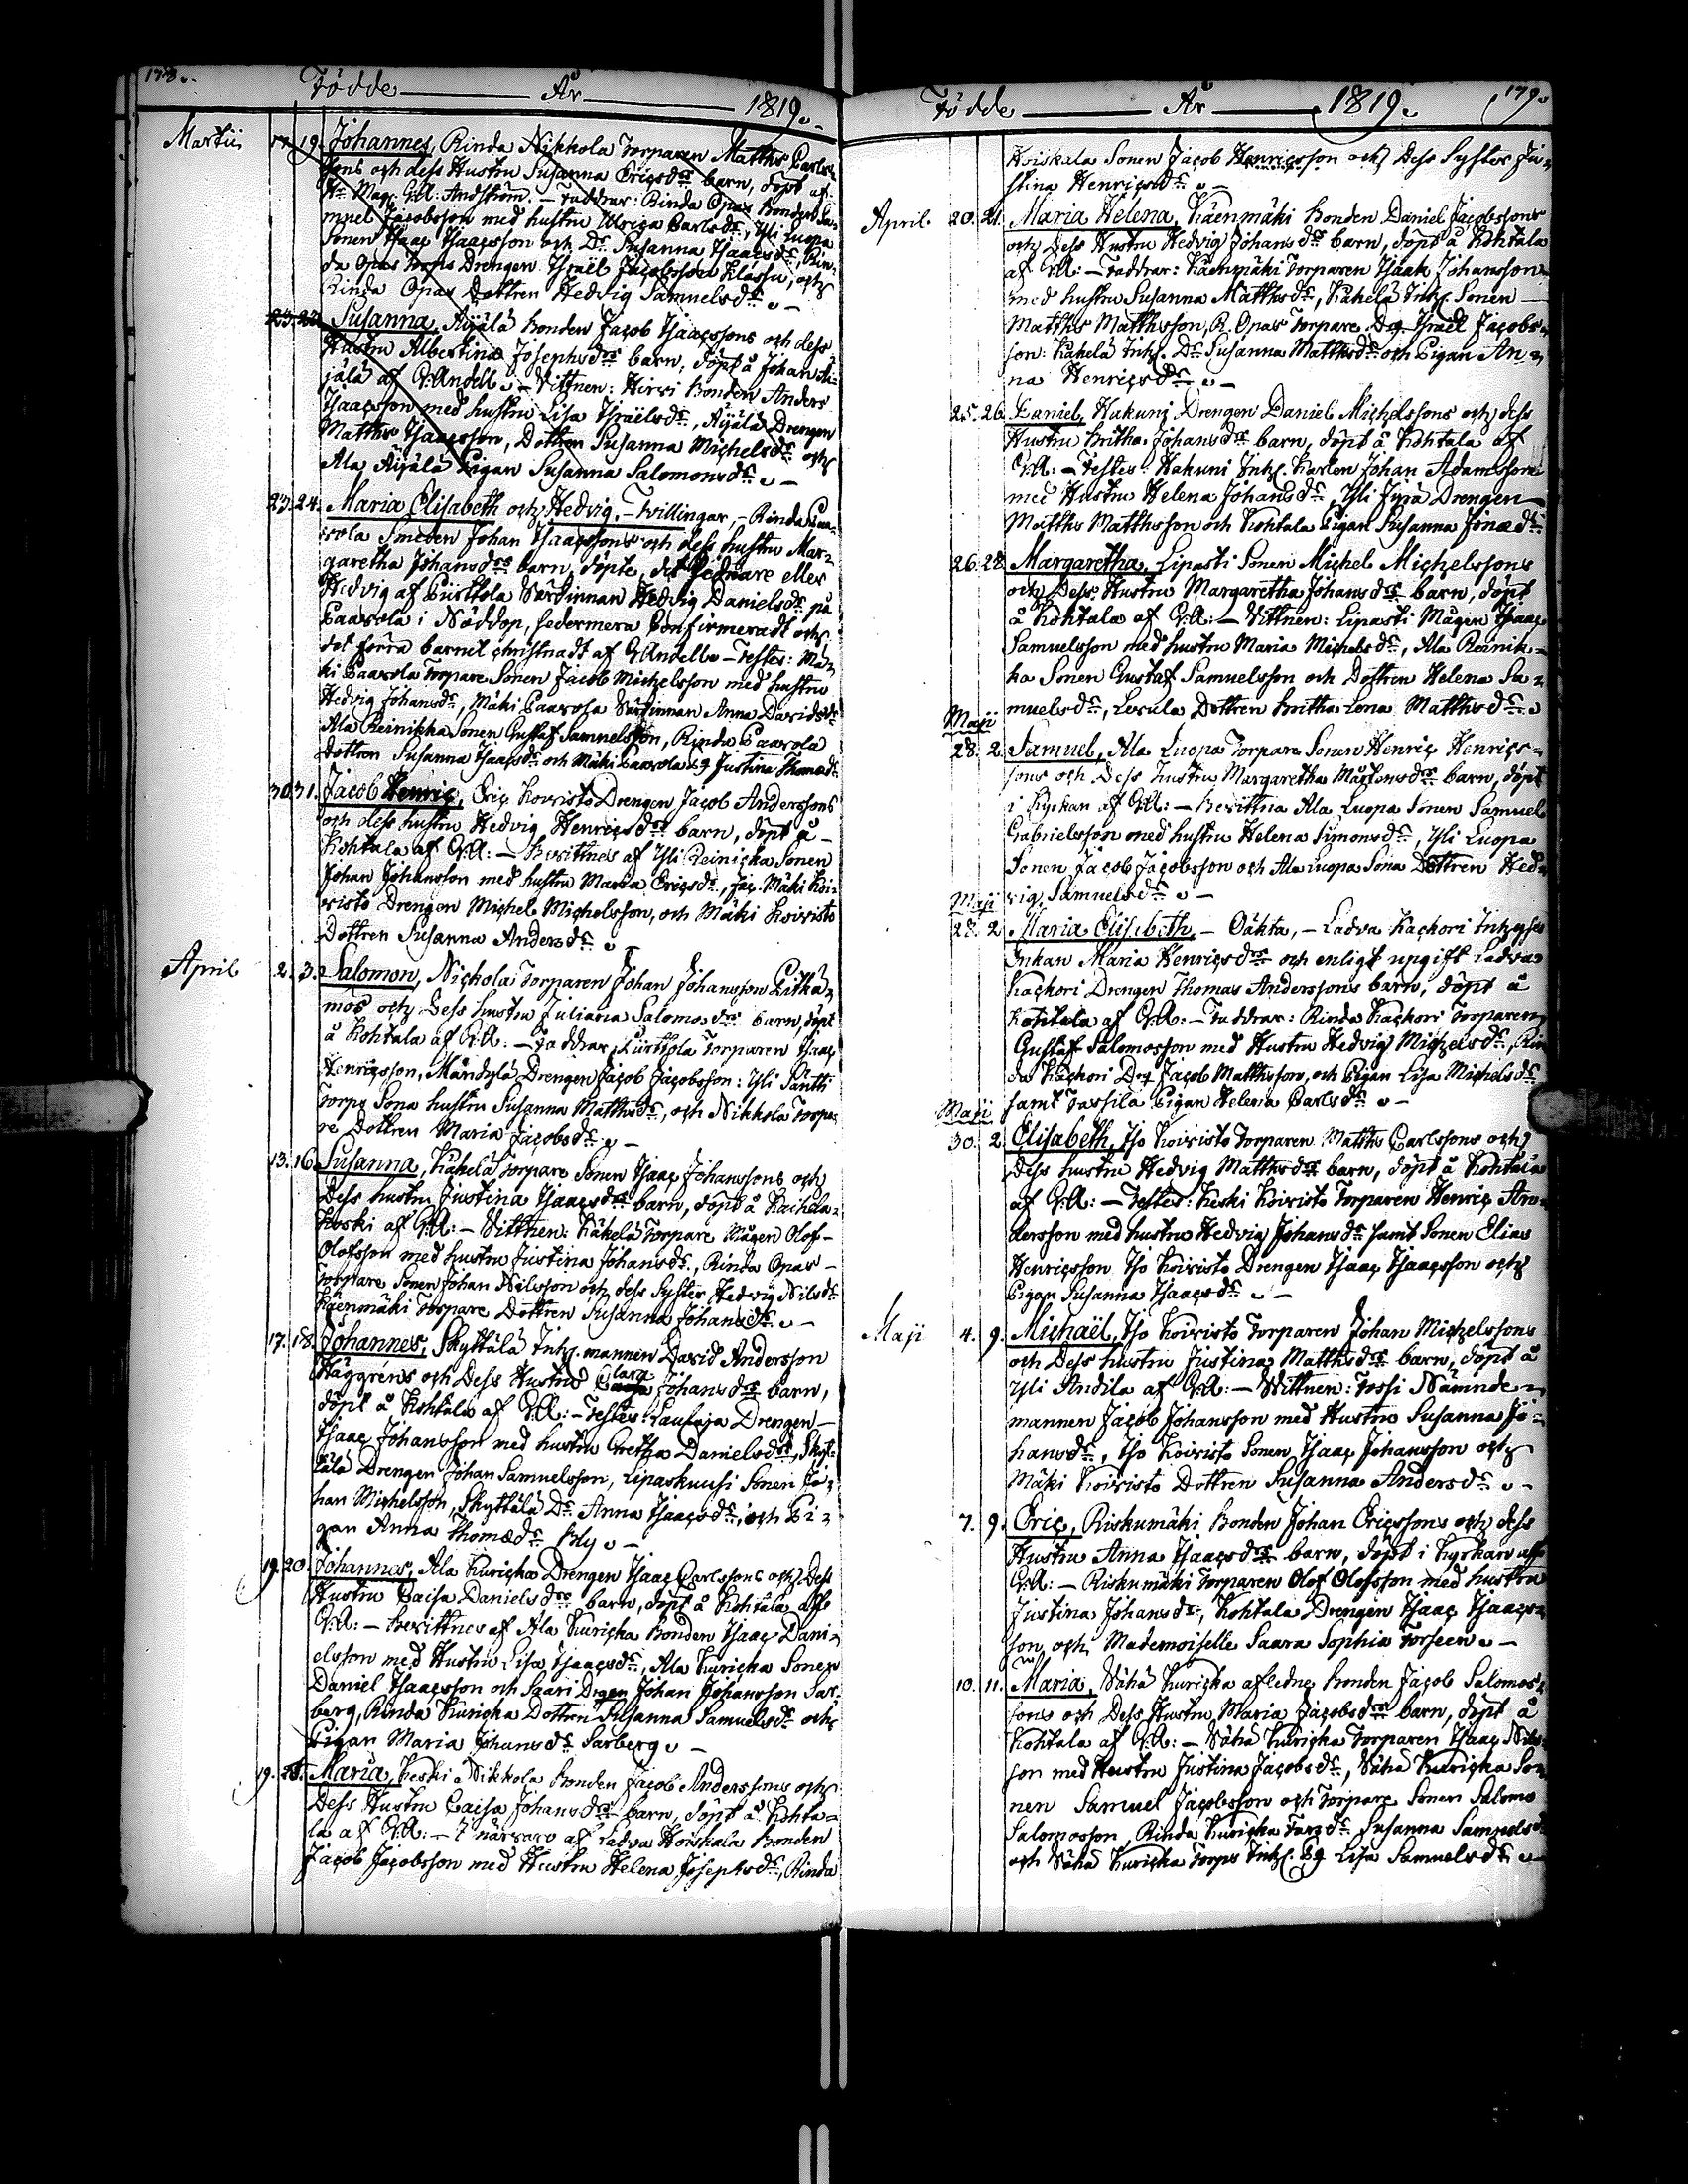 178.
Födde År 1819.
Martii 17. 19. Johannes, Rinda Nikkola Torparen Matths Carls-
sons och dess Hustru Susanna Ericsdrs barn, döpt af
Hr Mag. G.A: Andström. - Faddrar: Rinda Opas Bonden Sa-
muel Jacobsson med hustru Ulrica Carlsdr, Yli Luopa
Sonen Isaac Isaacsson och Dr Susanna Isaacsdr, Rin-
da Opas Torps Drengen Israël Jacobsson Klassu, och
Rinda Opas Dottren Hedvig Samuelsdr. -
23. Susanna, Äijälä Bonden Jacob Isaacssons och dess
Hustru Albertina Josephsdrs barn, döpt å Johan Äi-
jälä af G:Andell. - Vittnen: Hirvi Bonden Anders
Isaacsson med hustru Lisa Israëlsdr, Äijälä Drengen
Matths Isaacsson, Dottren Susanna Michelsdr och
Ala Äijälä Pigan Susanna Salomonsdr. -
23. 24. Maria Elisabeth och Hedvig. - Tvillingar, - Rinda Paa-
vola Smeden Johan Isaacssons och dess hustru Mar-
garetha Johansdrs barn, döpte, det sednare eller
Hedvig af Piirttola Värdinnan Hedvig Danielsdr på
Paavola i Nöddop, sedermera Confirmeradt och
det förra barnet christnadt af G:Andell. - Testes: Mä-
ki Paavola Torpare Sonen Jacob Michelsson med hustru
Hedvig Johansdr, Mäki Paavola Värdinnan Anna Davidsdr
Ala Reinikka Sonen Gustaf Samuelsson, Rinda Paavola
Dottren Susanna Isaacsdr och Mäki Paavola Pg Justina Thomædr
30. 31. Jacob Henric, Eric Koivisto Drengen Jacob Anderssons
och dess hustru Hedvig Henricsdrs barn, döpt å -
Kohtala af G:A: - Bevittnes af Yli Reinicka Sonen
Johan Johansson med hustru Maria Ericsdr, Jac. Mäki Koi-
visto Drengen Michel Michelsson, och Mäki Koivisto
Dottren Susanna Andersdr. -
April 2. 3. Salomon, Nickola Torparen Johan Johansson Pitkä-
mös och Dess hustru Juliana Salomosdrs barn, döpt
å Kohtala af G:A: - Faddrar, Piirttola Torparen Isaac
Henricsson, Mändylä Drengen Jacob Jacobsson: Yli Säntti
Torps Sona hustru Susanna Matthsdr, och Nikkola Torpa-
re Dottren Maria Jacobsdr. -
13. 16. Susanna, Käkelä Torpare Sonen Isaac Johanssons och
Dess hustru Justina Isaacsdrs barn, döpt å
Koski af G:A: - Vittnen: Käkelä Torpare Mågen Olof -
Olofsson med hustru Justina Johansdr, Rinda Opas -
Torpare Sonen Johan Nilsson och dess Syster Hedvig Nilsdr
Käenmäki Torpare Dottren Susanna Johansdr. -
17. 18. Johannes, Skyttälä Inhs. mannen David Andersson
Häggréns och Dess Hustru Clara Johansdrs barn,
döpt å Kohtala af G:A: - Testes: Laulaja Drengen -
Isaac Johansson med hustru Gretha Danielsdr, Skyt-
tälä Drengen Johan Samuelsson, Lipaskuusi Sonen Jo-
han Michelsson, Skyttälä Dr Anna Isaacsdr, och Pi-
gan Anna Thomædr Bly. -
19. 20. Johannes, Ala Kuricka Drengen Isaac Carlssons och Dess
Hustru Caisa Danielsdrs barn, döpt å Kohtala af
G:A: - Bevittnes af Ala Kuricka Bonden Isaac Dani-
elsson med Hustru Lisa Isaacsdr, Ala Kuricka Sonen
Daniel Isaacsson och Saari Drgen Johan Johansson Sar-
berg, Rinda Kuricka Dottren Susanna Samuelsdr och
Pigan Maria Johansdr Sarberg. -
19. Maria, Keski Nikkola Bonden Jacob Anderssons och
Dess Hustru Caisa Johansdrs barn, döpt å Kohta-
la af G:A: - I närvaro af Ladva Hoiskala Bonden
Jacob Jacobsson med Hustru Helena Josephsdr, Rinda
Födde År 1819. 179.
Hoiskala Sonen Jacob Henricsson och Dess Syster Ju-
stina Henricsdr. -
April. 20. 21. Maria Helena, Käenmäki Bonden Daniel Jacobssons
och Dess Hustru Hedvig Johansdrs barn, döpt å Kohtala
af G:A: - Faddrar: Käenmäki Torparen Isaak Johansson
med hustru Susanna Matthsdr, Käkelä Inhs. Sonen
Matths Matthsson, R. Opas Torpare Drg Israël Jacobs-
son: Käkelä Inhs. Dr Susanna Matthsdr och Pigan An-
na Henricsdr. -
25. 26. Daniel, Hakuni Drengen Daniel Michelssons och dess
Hustru Britha Johansdrs barn, döpt å Kohtala af
G:A: - Testes: Hakuni Inhs. Karlen Johan Adamsson
med Hustru Helena Johansdr, Yli Jyrä Drengen
Matths Matthsson och Kohtala Pigan Susanna Jonædr
26. 28. Margaretha, Lipasti Sonen Michel Michelssons
och Dess Hustru Margaretha Johansdrs barn, döpt
å Kohtala af G:A: - Vittnen: Lipasti Mågen Isaac
Samuelsson med hustru Maria Michelsdr, Ala Reinik-
ka Sonen Gustaf Samuelsson och Dottren Helena Sa-
muelsdr, Lerula Dottren Britha Lena Matthsdr.
Maji
28. 2. Samuel, Ala Luopa Torpare Sonen Henric Henrics-
sons och Dess hustru Margaretha Mårtensdrs barn, döpt
i Kyrkan af G:A: - Bevittna Ala Luopa Sonen Samuel
Gabrielsson med hustru Helena Simonsdr, Yli Luopa
Sonen Jacob Jacobsson och Ala Luopa Sona Dottren Hed-
vig Samuelsdr. -
Maji
28. 2. Maria Elisabeth, - Oäkta, - Ladva Kackori Inhyses
Enkan Maria Henricsdrs och enligt upgift Ladva
Kackori Drengen Thomas Anderssons barn, döpt å
Kohtala af G:A: - Faddrar: Rinda Kackori Torparen
Gustaf Salomosson med Hustru Hedvig Michelsdr, Rin
da Kackori Drg Jacob Matthsson, och Pigan Lisa Michelsdr
samt Tassila Pigan Helena Carlsdr. -
Maji
30. 2. Elisabeth, Iso Koivisto Torparen Matths Carlssons och
Dess hustru Hedvig Matthsdrs barn, döpt å Kohtala
af G:A: - Testes: Keski Koivisto Torparen Henric An-
dersson med hustru Hedvig Johansdr samt Sonen Elias
Henricsson Iso Koivisto Drengen Isaac Isaacsson och
Pigan Susanna Isaacsdr. -
Maji 4. 9. Michaël, Iso Koivisto Torparen Johan Michelssons
och Dess hustru Justina Matthsdrs barn, döpt å
Yli Andila af G:A: - Vittnen: Tossi Nämnde-
mannen Jacob Johansson med Hustru Susanna Jo-
hansdr, Iso Koivisto Sonen Isaac Johansson och
Mäki Koivisto Dottren Susanna Andersdr. -
7. 9. Eric, Riskumäki Bonden Johan Ericssons och dess
Hustru Anna Isaacsdrs barn, döpt i Kyrkan af
G:A: - Riskumäki Torparen Olof Olofsson med hustru
Justina Johansdr, Kohtala Drengen Isaac Isaacs-
son, och Mademoiselle Saara Sophia Forseen. -
10. 11. Maria, Vähä Kuricka afledne Bonden Jacob Salomos-
sons och Dess Hustru Maria Jacobsdrs barn, döpt å
Kohtala af G:A: - Vähä Kuricka Torparen Isaac Nils-
son med Hustru Justina Jacobsdr, Vähä Kuricka So-
nen Samuel Jacobsson och Torpare Sonen Salomo
Salomosson, Rinda Kuricka Susanna Samuelsdr
och Vähä Kuricka Torps Inhs. Pg Lisa Samuelsdr. -